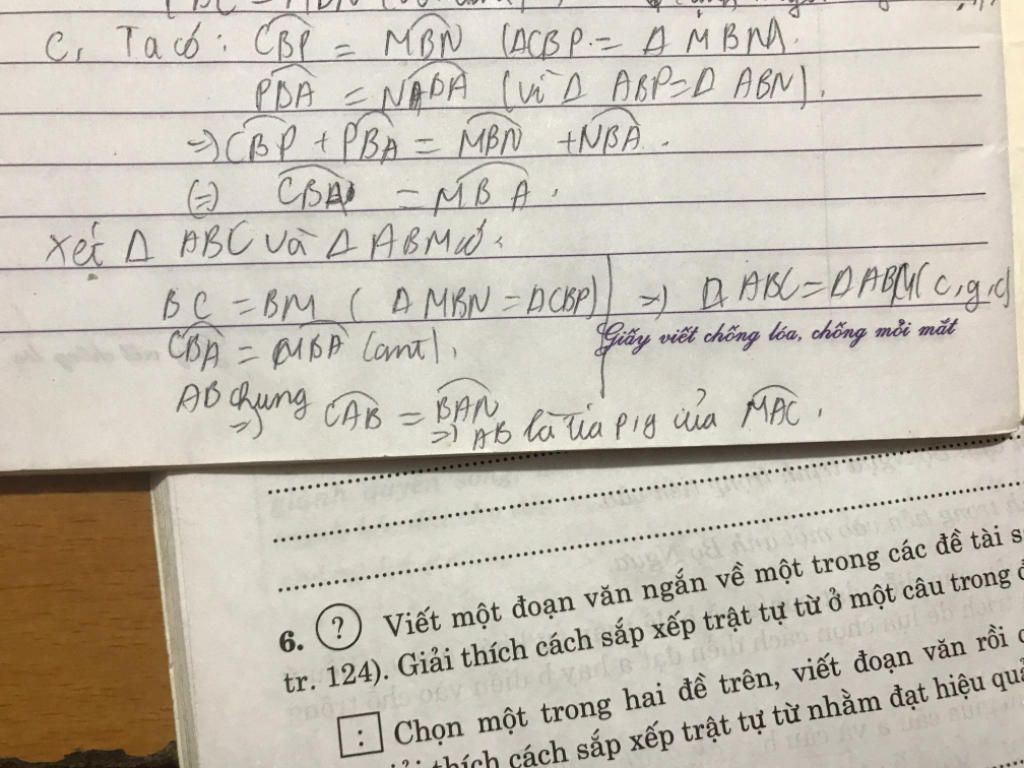 C, Ta có : CBP = MBN (ΔCBP = Δ MBN).
PBA = NBA (vì Δ ABP=Δ ABN).
=> CBP + PBA = MBN + NBA.
(=) CBA = MBA.
Xét Δ ABC và Δ ABM có:
BC = BM ( Δ MBN = ΔCBP) => Δ ABC = ΔABM( c,g,c)
CBA = MBA (cmt).
Giấy viết chống lóa, chống mỏi mắt
AB chung
=> CAB = BAN
=> AB là tia p/g của MAC.
6. ? Viết một đoạn văn ngắn về một trong các đề tài
tr. 124). Giải thích cách sắp xếp trật tự từ ở một câu trong
: Chọn một trong hai đề trên, viết đoạn văn rồi
thích cách sắp xếp trật tự từ nhằm đạt hiệu quả